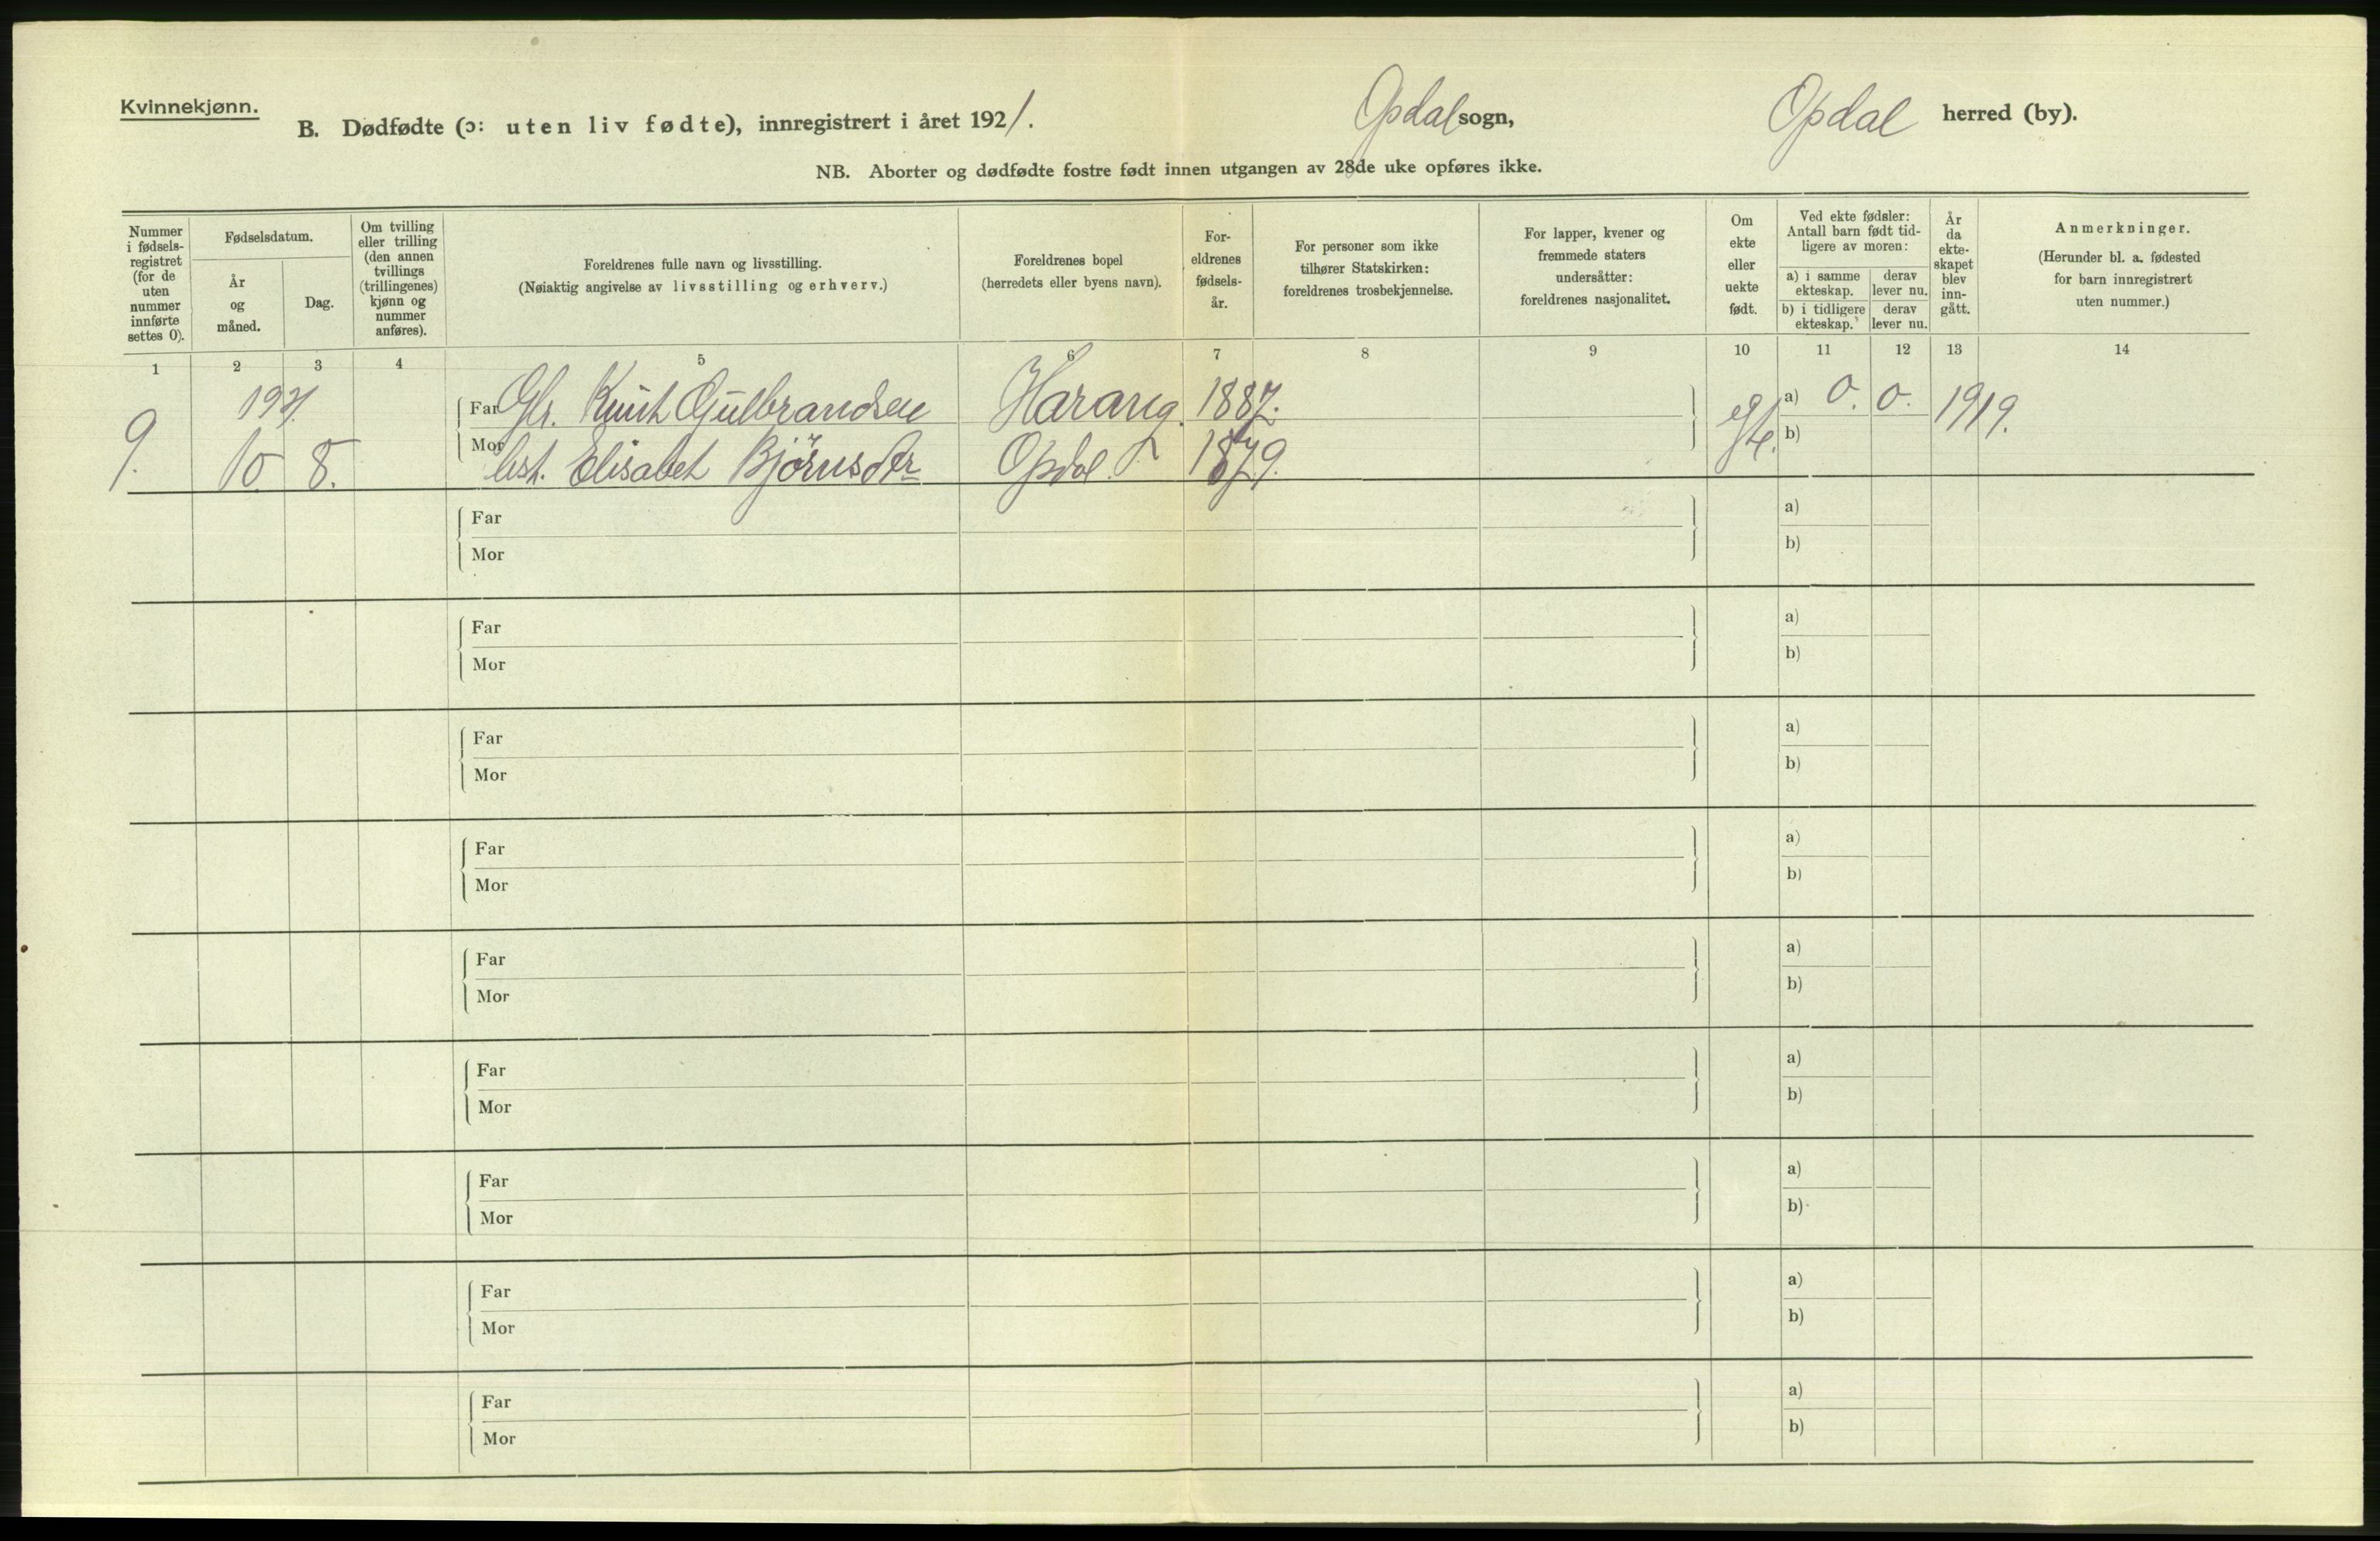 Kvinnekjønn.
B. Dødfødte (ɔ: uten liv fødte), innregistrert i året 1921. Opdal sogn, Opdal herred (by).
NB. Aborter og dødfødte fostre født innen utgangen av 28de uke opføres ikke.
Nummer i fødsels-registret (for de uten nummer innførte settes 0).
Fødselsdatum.
År og måned.
Dag.
Om tvilling eller trilling (den annen tvillings (trillingenes) kjønn og nummer anføres).
Foreldrenes fulle navn og livsstilling.
(Nøiaktig angivelse av livsstilling og erhverv.)
Foreldrenes bopel
(herredets eller byens navn).
For-eldrenes fødsels-år.
For personer som ikke tilhører Statskirken: foreldrenes trosbekjennelse.
For lapper, kvener og fremmede staters undersåtter: foreldrenes nasjonalitet.
Om ekte eller uekte født.
Ved ekte fødsler:
Antall barn født tid-ligere av moren:
a) i samme ekteskap.
derav lever nu.
b) i tidligere ekteskap.
derav lever nu.
År da ekte-skapet blev inn-gått.
Anmerkninger.
(Herunder bl. a. fødested for barn innregistrert uten nummer.)
1 2 3 4 5 6 7 8 9 10 11 12 13 14
1921 Far Gbr. Knut Gulbrandsen Harang. 1887. a) 0. 0. 1919.
9. 10 8. Mor Elisabet Björnsdtr Opdal 1879. egte. b)
Far a)
Mor b)
Far a)
Mor b)
Far a)
Mor b)
Far a)
Mor b)
Far a)
Mor b)
Far a)
Mor b)
Far a)
Mor b)
Far a)
Mor b)
Far a)
Mor b)